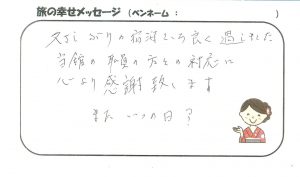 旅の幸せメッセージ（ペンネーム： ）
久々ぶりの宿泊 良く過しました
当館の職員の方々の対応に
心より感謝致します
また いつの日?